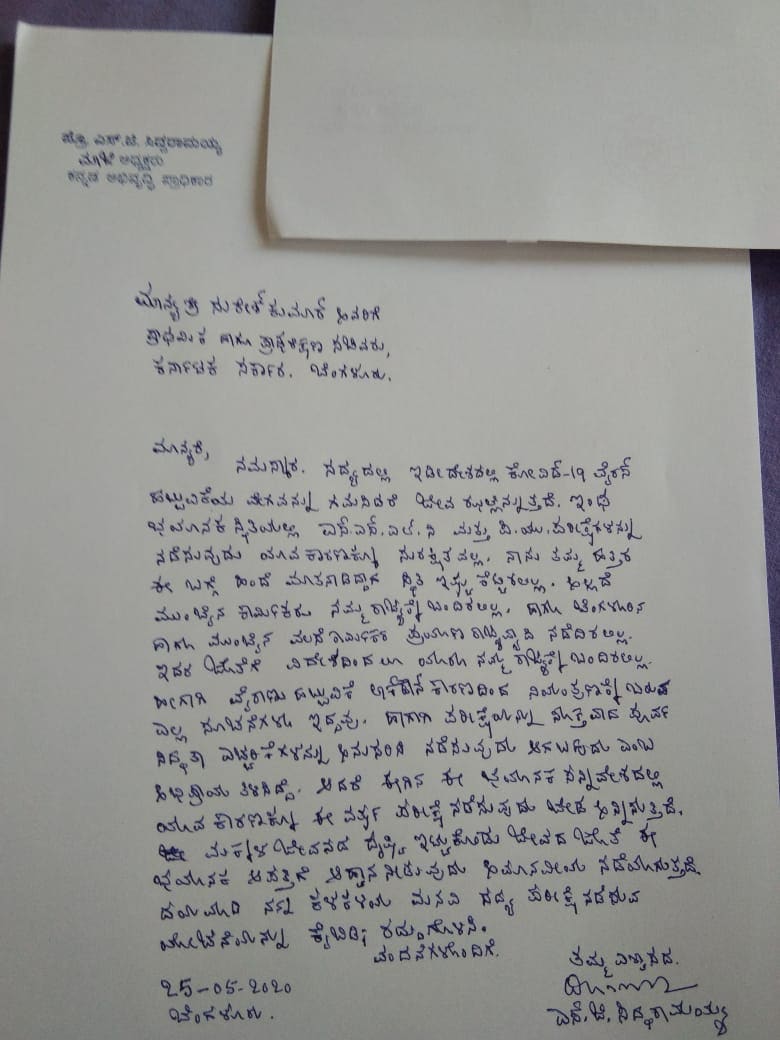 ಪ್ರೊ. ಎಸ್.ಜಿ. ಸಿದ್ದರಾಮಯ್ಯ
ಮಾಜಿ ಅಧ್ಯಕ್ಷರು
ಕನ್ನಡ ಅಭಿವೃದ್ಧಿ ಪ್ರಾಧಿಕಾರ
ಮಾನ್ಯ ಶ್ರೀ ಸುರೇಶ್ ಕುಮಾರ್ ಅವರಿಗೆ
ಪ್ರಾಥಮಿಕ ಹಾಗೂ ಪ್ರೌಢಶಿಕ್ಷಣ ಸಚಿವರು,
ಕರ್ನಾಟಕ ಸರ್ಕಾರ. ಬೆಂಗಳೂರು.
ಮಾನ್ಯರೆ,
ನಮಸ್ಕಾರ. ಸದ್ಯದಲ್ಲಿ ಇಡೀದೇಶದಲ್ಲಿ ಕೋವಿಡ್-19 ವೈರಸ್
ಹಬ್ಬುವಿಕೆಯ ವೇಗವನ್ನು ಗಮನಿಸಿದರೆ ಜೀವ ಝಲ್ಲೆನ್ನುತ್ತದೆ. ಇಂಥ
ಭಯಾನಕ ಸ್ಥಿತಿಯಲ್ಲಿ ಎಸ್.ಎಸ್.ಎಲ್.ಸಿ ಮತ್ತು ಪಿ.ಯು. ಪರೀಕ್ಷೆಗಳನ್ನು
ನಡೆಸುವುದು ಯಾವ ಕಾರಣಕ್ಕೂ ಸುರಕ್ಷಿತವಲ್ಲ. ನಾನು ತಮ್ಮ ಹತ್ತಿರ
ಈ ಬಗ್ಗೆ ಹಿಂದೆ ಮಾತನಾಡಿದ್ದಾಗ ಸ್ಥಿತಿ ಇಷ್ಟು ಕೆಟ್ಟಿರಲಿಲ್ಲ. ಅಲ್ಲದೆ
ಮುಂಬೈನ ಕಾರ್ಮಿಕರು ನಮ್ಮ ರಾಜ್ಯಕ್ಕೆ ಬಂದಿರಲಿಲ್ಲ. ಹಾಗೂ ಬೆಂಗಳೂರಿನ
ಹಾಗೂ ಮುಂಬೈನ ವಲಸೆ ಕಾರ್ಮಿಕರ ಪ್ರಯಾಣ ರಾಜ್ಯವ್ಯಾಪಿ ನಡೆದಿರಲಿಲ್ಲ.
ಇದರ ಜೊತೆಗೆ ವಿದೇಶದಿಂದಲೂ ಯಾರೂ ನಮ್ಮ ರಾಜ್ಯಕ್ಕೆ ಬಂದಿರಲಿಲ್ಲ.
ಹೀಗಾಗಿ ವೈರಾಣು ಹಬ್ಬುವಿಕೆ ಲಾಕ್‌ಡೌನ್ ಕಾರಣದಿಂದ ನಿಯಂತ್ರಣಕ್ಕೆ ಬರುವ
ಎಲ್ಲ ಸೂಚನೆಗಳೂ ಇದ್ದವು. ಹಾಗಾಗಿ ಪರೀಕ್ಷೆಯನ್ನು ಸೂಕ್ತವಾದ ಪೂರ್ವ
ಸಿದ್ಧತಾ ಎಚ್ಚರಿಕೆಗಳನ್ನು ಅನುಸರಿಸಿ ನಡೆಸುವುದು ಆಗಬಹುದು ಎಂಬ
ಅಭಿಪ್ರಾಯ ತಿಳಿಸಿದ್ದೆ. ಆದರೆ ಈಗಿನ ಈ ಭಯಾನಕ ಸನ್ನಿವೇಶದಲ್ಲಿ
ಯಾವ ಕಾರಣಕ್ಕೂ ಈ ವರ್ಷ ಪರೀಕ್ಷೆ ನಡೆಸುವುದು ಬೇಡ ಅನ್ನಿಸುತ್ತದೆ.
ಮಕ್ಕಳ ಜೀವನದ ದೃಷ್ಟಿ ಇಟ್ಟುಕೊಂಡು ಜೀವದ ಜೊತೆ ಈ
ಭಯಾನಕ ಆಪತ್ತಿಗೆ ಆಹ್ವಾನ ನೀಡುವುದು ಅಮಾನವೀಯ ನಡೆಯಾಗುತ್ತದೆ.
ದಯಮಾಡಿ ನನ್ನ ಕಳಕಳಿಯ ಮನವಿ ಸದ್ಯ ಪರೀಕ್ಷೆ ನಡೆಸುವ
ಯೋಚನೆಯನ್ನು ಕೈಬಿಡಿ; ರದ್ದುಗೊಳಿಸಿ.
ವಂದನೆಗಳೊಂದಿಗೆ.
ತಮ್ಮ ವಿಶ್ವಾಸದ.
25-05-2020
ಬೆಂಗಳೂರು.
ಎಸ್. ಜಿ. ಸಿದ್ದರಾಮಯ್ಯ